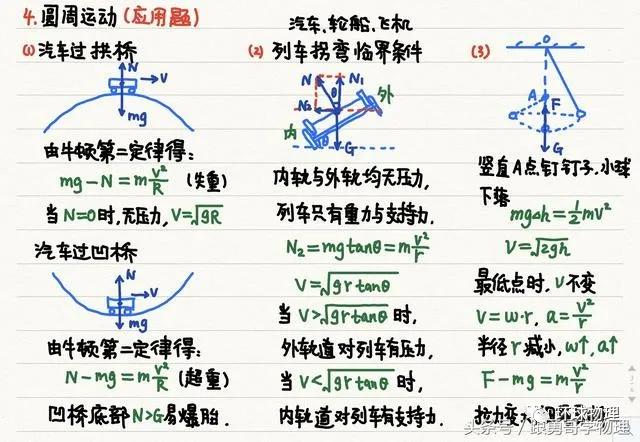 4.圆周运动(应用题)
(1)汽车过拱桥
N
V
mg
由牛顿第二定律得:
mg-N=m v²/R (失重)
当N=0时,无压力,V=√gR
汽车过凹桥
N
V
mg
由牛顿第二定律得:
N-mg=m v²/R (超重)
凹桥底部N>G易爆胎.
汽车、轮船、飞机
(2)列车拐弯临界条件
N
N₁
N₂
θ
外
内
θ
G
内轨与外轨均无压力,
列车只有重力与支持力,
N₂=mgtanθ=m v²/r
V=√grtanθ
当V>√grtanθ时,
外轨道对列车有压力,
当V<√grtanθ时,
内轨道对列车有支持力.
(3)
O
A
F
G
竖直A点钉钉子,小球
下落
mg△h=½mv²
V=√2gh
最低点时,V不变
V=ω·r, a=v²/r
半径r减小,ω↑,a↑
F-mg=m v²/r
拉力变大
环球物理
头条号/跟勇哥学物理